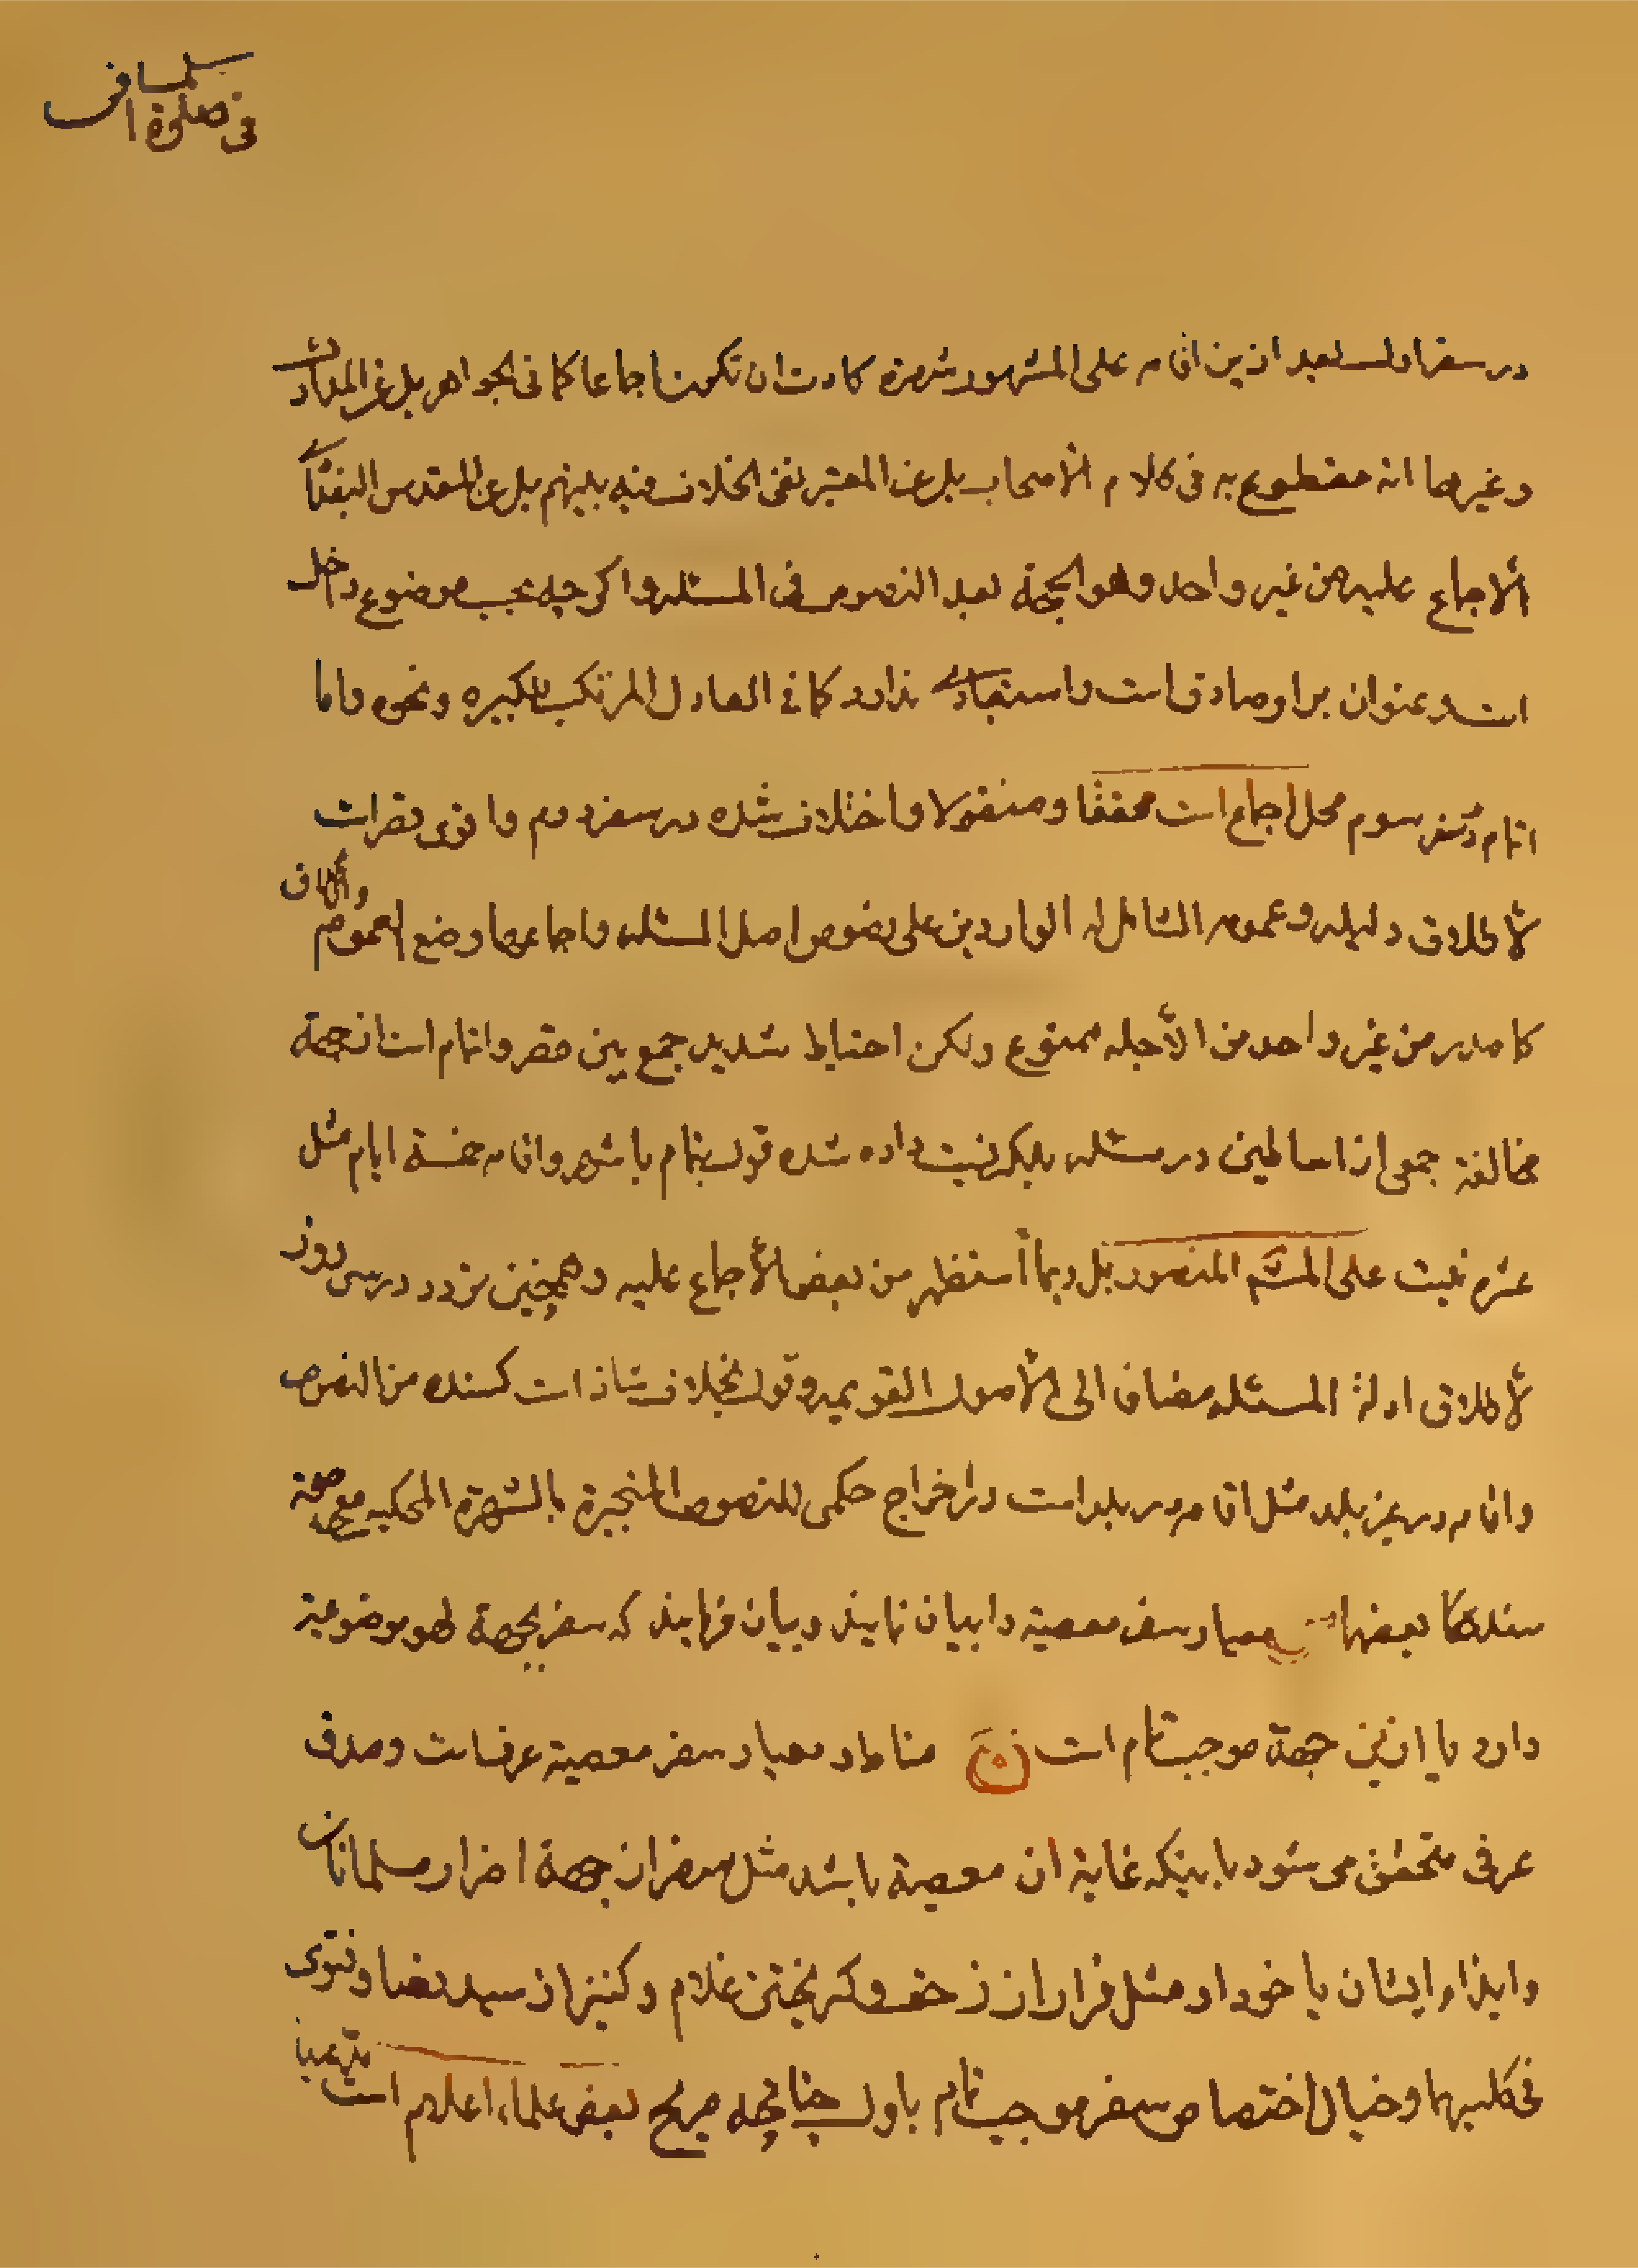 فی صلوة المسافر
در سفر اول بعد از این اقامه علی المشهور شهرة کادت ان تکون اجماعا کما فی الجواهر بل عن المدارک
و غیرها انه مقطوع به فی کلام الأصحاب بل عن المعتبر نفی الخلاف فیه بینهم بل عن المقدس البغدادی
الأجماع علیه من غیر واحد و هو الحجة بعد النصوص فی المسئله و اکرچه بحسب موضوع داخل
است و عنوان بر او صادق است و استبعادی ندارد کما فی العادل المرتکب للکبیره و نحوه و اما
اتمام در سفر سوم محل اجماع است محققا و منقولا و اختلاف شده در سفر دوم و اقوی قصر است
لأطلاق دلیله و عمومه الشامل له الواردین علی نصوص اصل المسئله و اجماعها و منع العموم و الأطلاق
کما صدر من غیر واحد من الأجله ممنوع ولکن احتیاط شدید جمع بین قصر و اتمام است از جهة
مخالفة جمعی از اساطین در مسئله بلکه نسبت داده شده قول بتمام با شهر و اقامه خمسة ایام مثل
عشره نیست علی المشهَر المنصور بل ربما أستظهر من بعض الأجماع علیه و همچنین تردد در سی روز
لأطلاق ادلة المسئله مضاف الی الأصول القویمه و قول بخلاف شاذ است کسنده من النصوص
و اقامه در غیر بلد مثل اقامه در بلد است در اخراج حکمی للنصوص المنجبرة بالشهرة المحکیه مع صحة
سندها کما بعضها س معیار سفر معصیة را بیان نمایند و بیان فرمایند که سفر بجهة لهو موضوعیة
دارد یا از این جهة موجب تمام است ج مناط و معیار سفر معصیة عرف است و صدق
عرفی متحقق می شود باینکه غایة ان معصیة باشد مثل سفر از جهة اضرار مسلمانان
و ایذاء ایشان یا خود او مثل فرار از زحف و کریختن غلام و کنیز از سید نصا و فتوی
فی کلیهما و خیال اختصاص سفر موجب تمام باول چنانچه صریح بعض علماء اعلام است